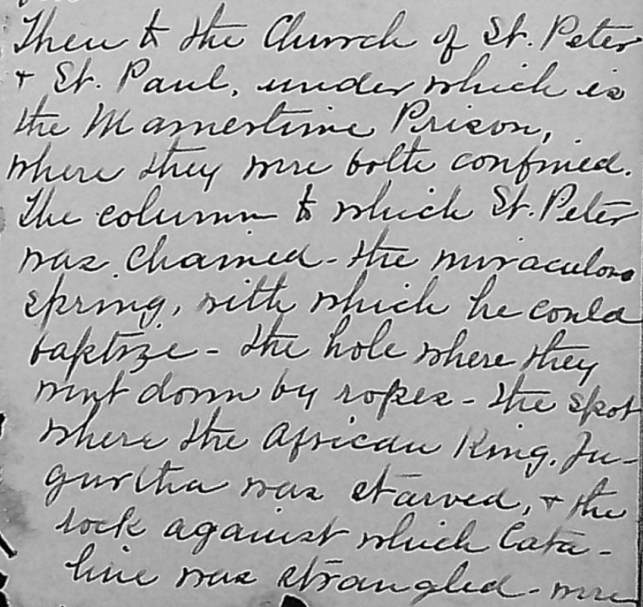 Then to the Church of St. Peter
+ St. Paul, under which is
the Mamertime Prison,
where they were both confined.
The column to which St. Peter
was chained - the miraculous
spring, with which he could
baptize - the hole where they
went down by ropes - the spot
where the African King, Ju-
gurtha was starved, + the
rock against which Cata-
line was strangled - were